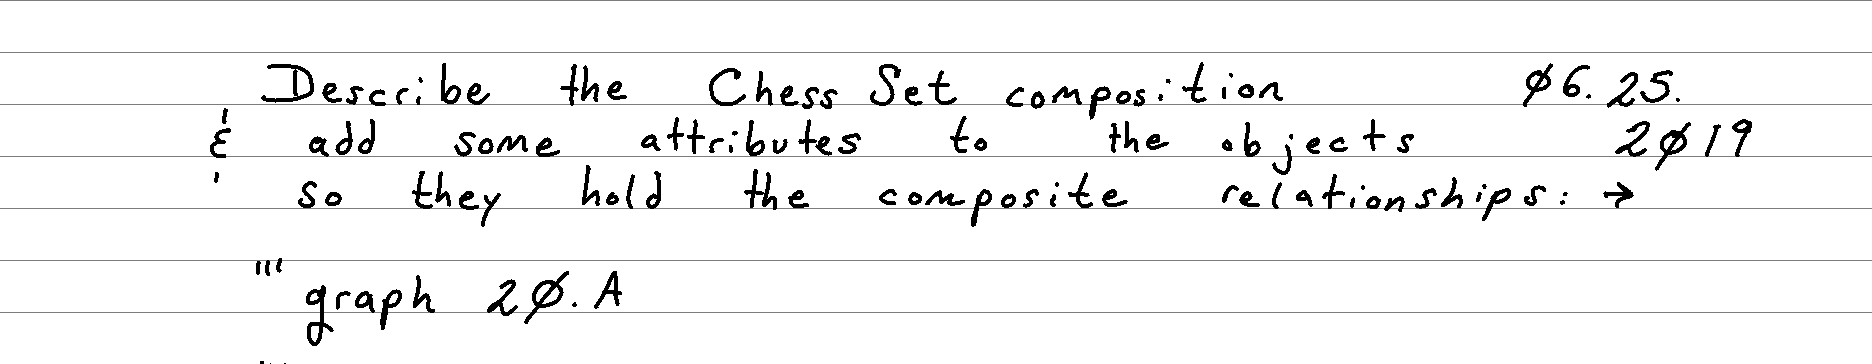 Describe the Chess Set composition ø6.25.
& add some attributes to the objects 2ø19
so they hold the composite relationships: →
''' graph 2ø.A
'''